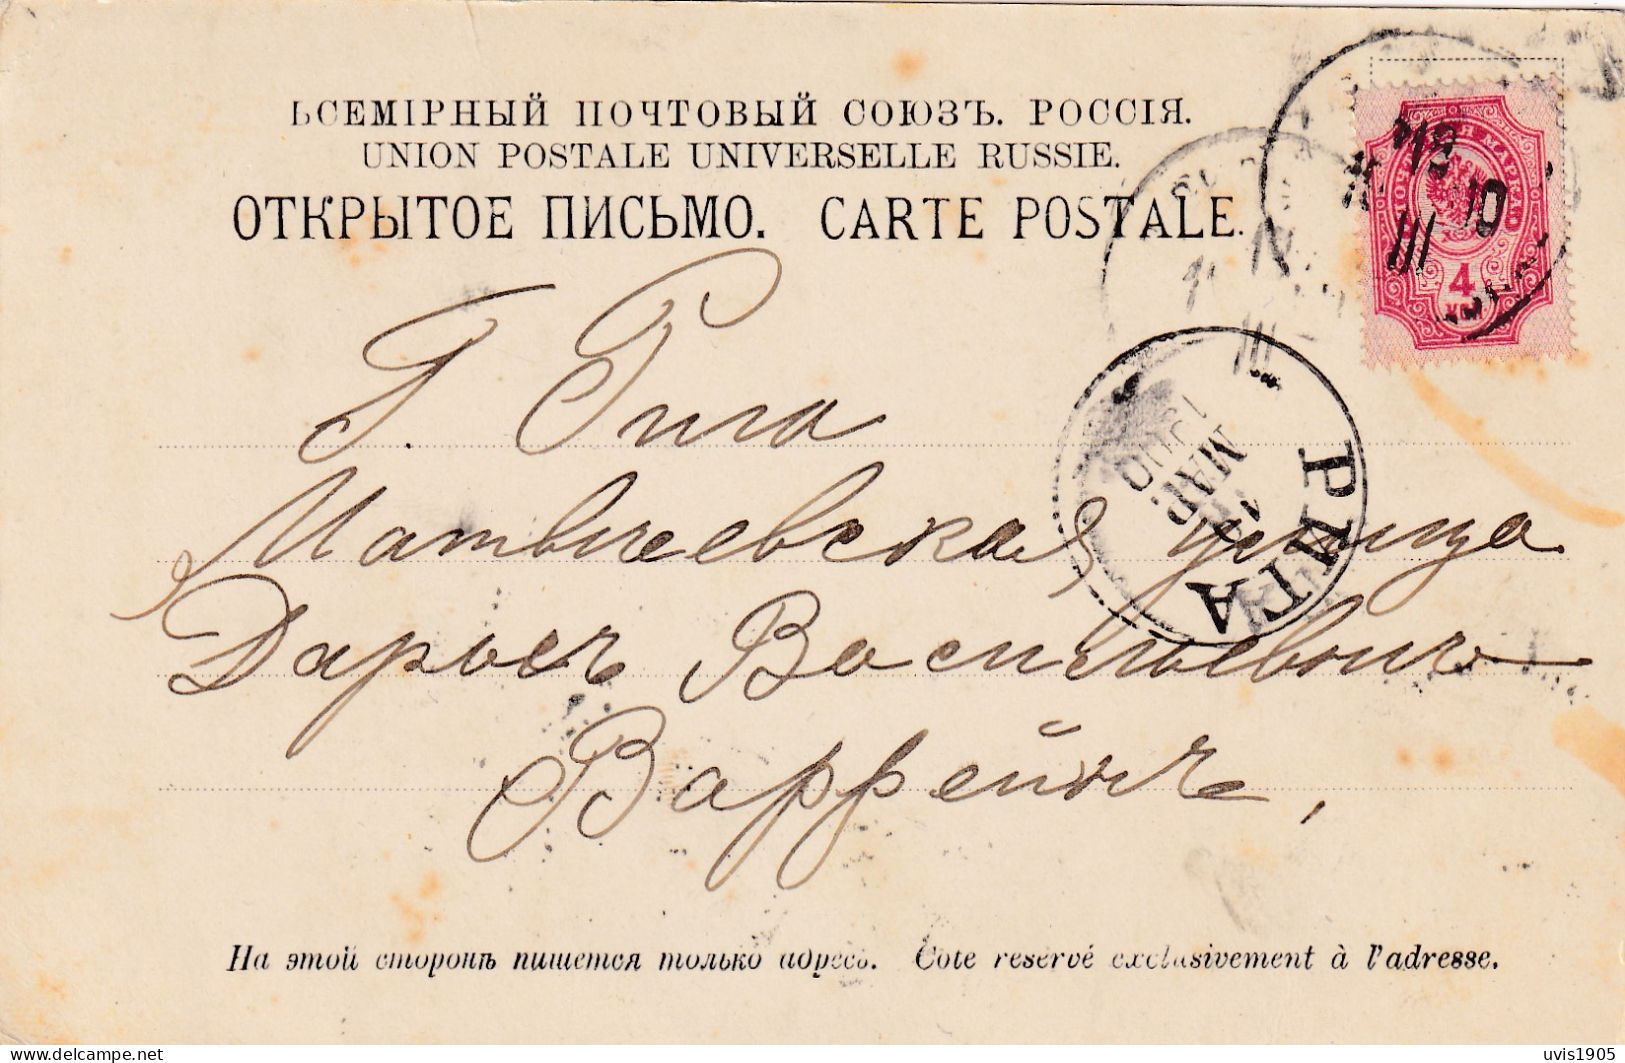 ВСЕМІРНЫЙ ПОЧТОВЫЙ СОЮЗЪ. РОССІЯ.
UNION POSTALE UNIVERSELLE RUSSIE.
ОТКРЫТОЕ ПИСЬМО. CARTE POSTALE.
4
КОП
Г. Рига
РИГА
МАР.
Матвѣевская улица
Дарьѣ Васильевнѣ
Варфейнъ,
На этой сторонѣ пишется только адресъ. Cote reservé exclusivement à l'adresse.
delcampe.net
uvis1905